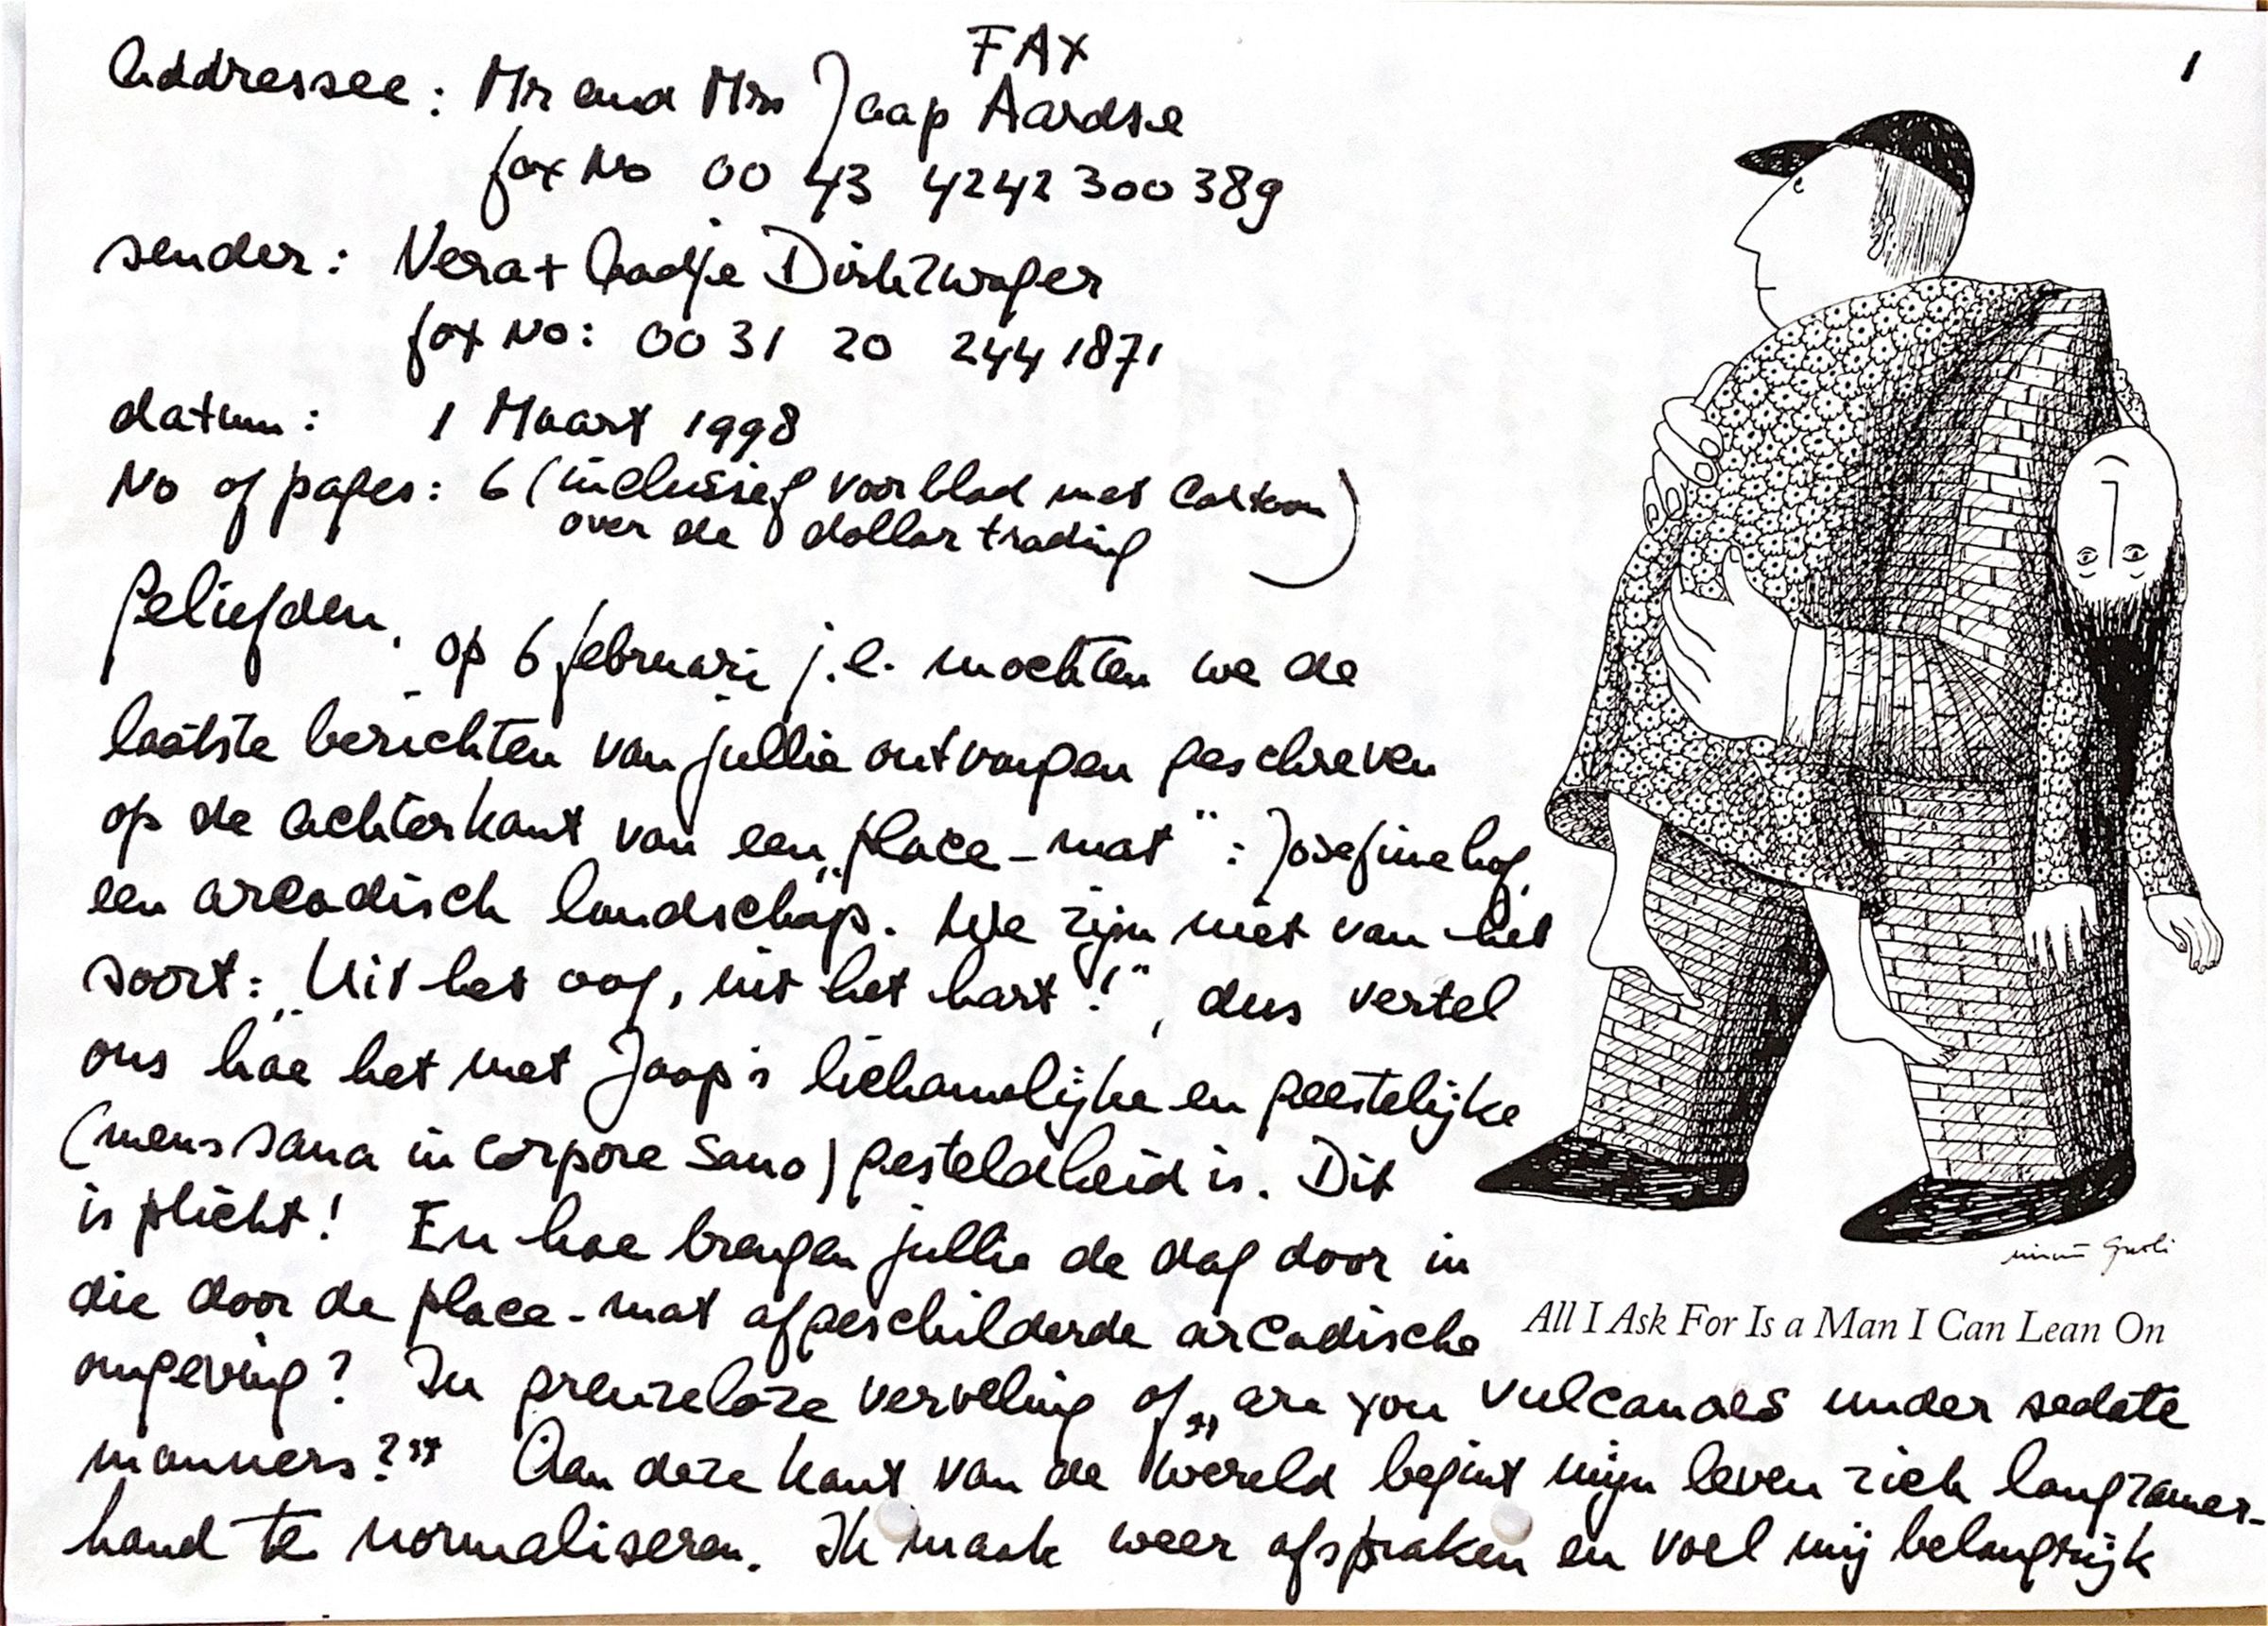 FAX
1
Addressee: Mr and Mrs Jaap Aardse
fax No 00 43 4242 300 389
sender: Vera + Aadje Dirkzwager
fax No: 00 31 20 244 1871
datum: 1 Maart 1998
No of pages: 6 (inclusief voorblad met Cartoon
over de dollar trading)
Geliefden,
op 6 februari j.l. mochten we de
laatste berichten van jullie ontvangen geschreven
op de achterkant van een „place-mat": Josefinehof,
een arcadisch landschap. We zijn niet van het
soort: „Uit het oog, uit het hart!", dus vertel
ons hoe het met Jaap's lichamelijke en geestelijke
(mens sana in corpore sano) gesteldheid is. Dit
is plicht! En hoe brengen jullie de dag door in
die door de place-mat afgeschilderde arcadische
omgeving? In grenzeloze verveling of „are you vulcanoes under sedate
manners?" Aan deze kant van de wereld begint mijn leven zich langzamer-
hand te normaliseren. Ik maak weer afspraken en voel mij belangrijk
All I Ask For Is a Man I Can Lean On